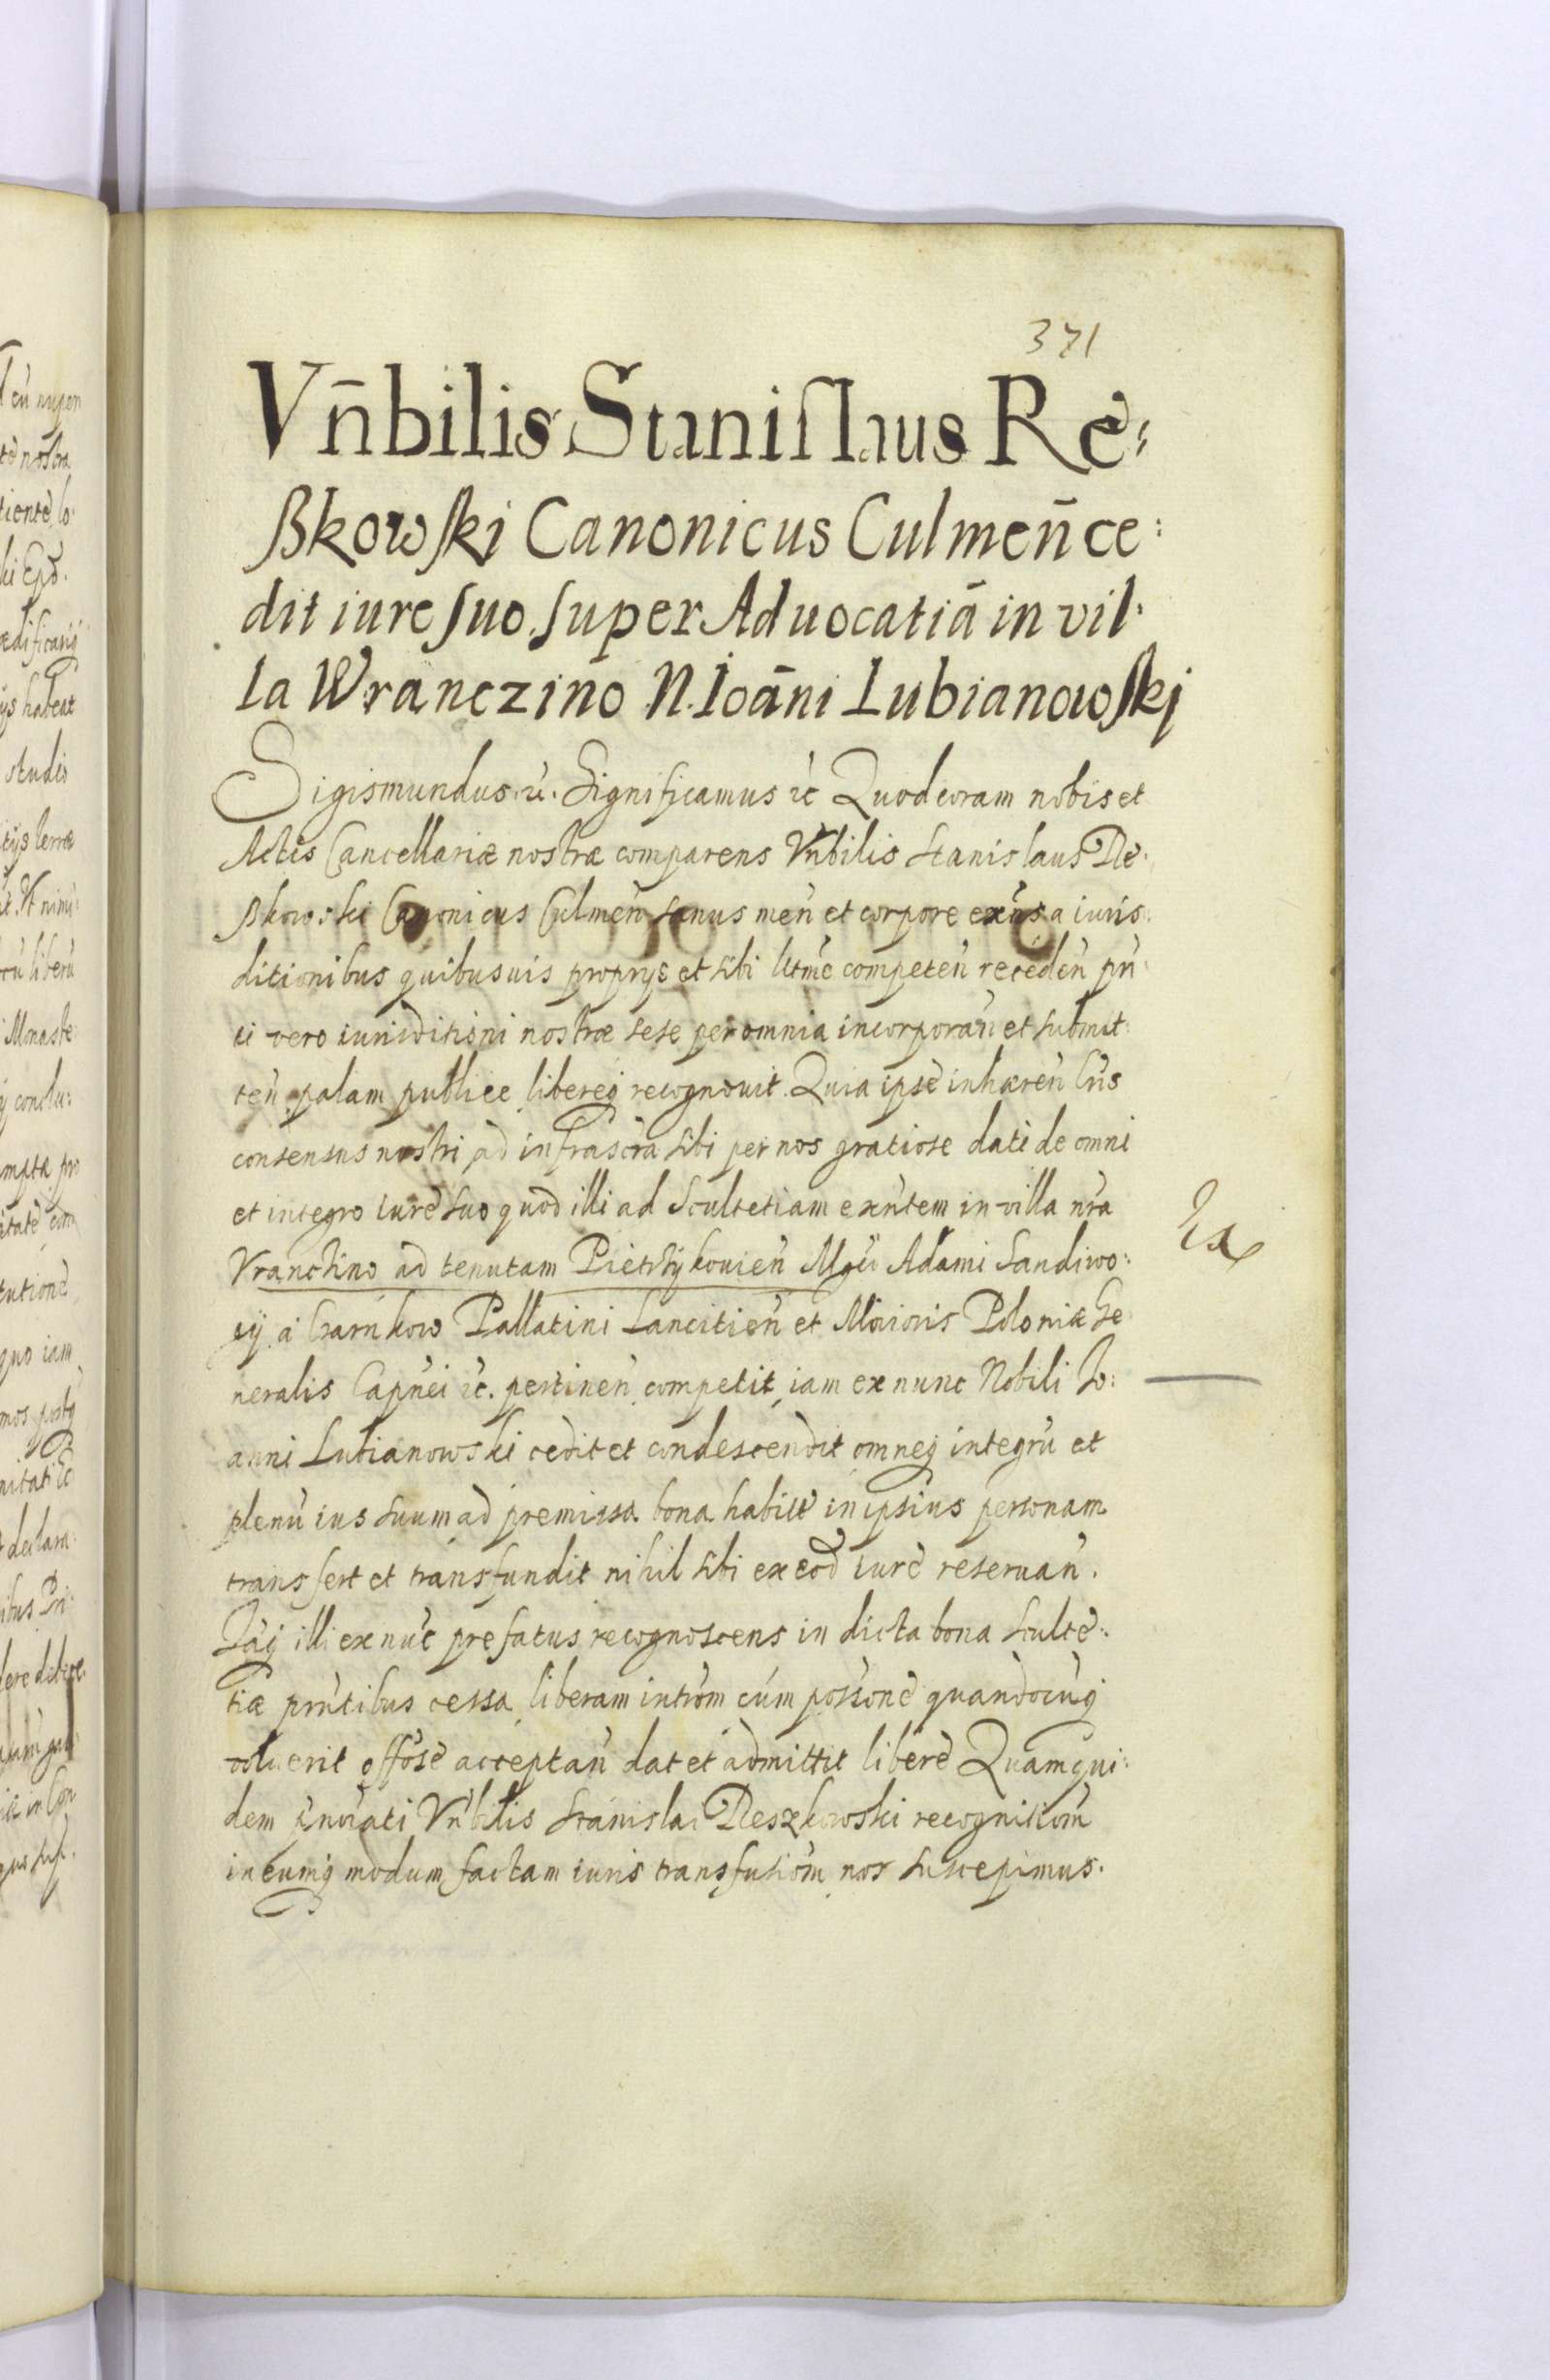 371
Vn̄bilis Stanislaus Re:
ßkowski Canonicus Culmen̄ ce:
dit iure suo super Aduocatiā in vil:
la Wranczino N. Ioān̄i Lubianowskj
Sigismundus etc. Significamus etc Quod coram nobis et
Actis Cancellariæ nostræ comparens Vn̄bilis Stanislaus Re:
ßkowski Canonicus Culmen̄ sanus men̄ et corpore exn̄s a iuris:
ditionibus quibusuis proprys et sibi ltme competen̄ receden̄ pn̄:
ti vero iurisditioni nostræ sese per omnia incorporan̄ et submit:
ten̄ palam publice libereq recognouit. Quia ipse inhæren̄ Lris
consensus nostri ad infrascra sibi per nos gratiose dati de omni
et integro iure suo quod illi ad Scultetiam exn̄tem in villa nr̄a
Vranctino ad tenutam Pietrzykouien̄ Mgci Adami Sandiwo:
ij á Czarnkow Pallatini Lancitien̄ et Maioris Poloniæ Ge
neralis Capn̄ei etc. pertinen̄ competit iam ex nunc Nobili Io:
anni Lubianowski cedit et condescendit omneq integrū et
plenū ius suum ad premissa bona habitū in ipsius personam
transfert et transfundit nihil sibi ex eod iure reseruan̄.
Iāq illi ex nūc prefatus recognoscens in dicta bona Sculte:
tiæ pn̄tibus cessa liberam intrōm cum possone quandocūq
voluerit offose acceptan̄ dat et admittit libere Quamqui:
dem Vn̄bilis Stanislai Reszkowski recognitiōm
in eumq modum factam iuris transfusiōm nos suscepimus.
Ex